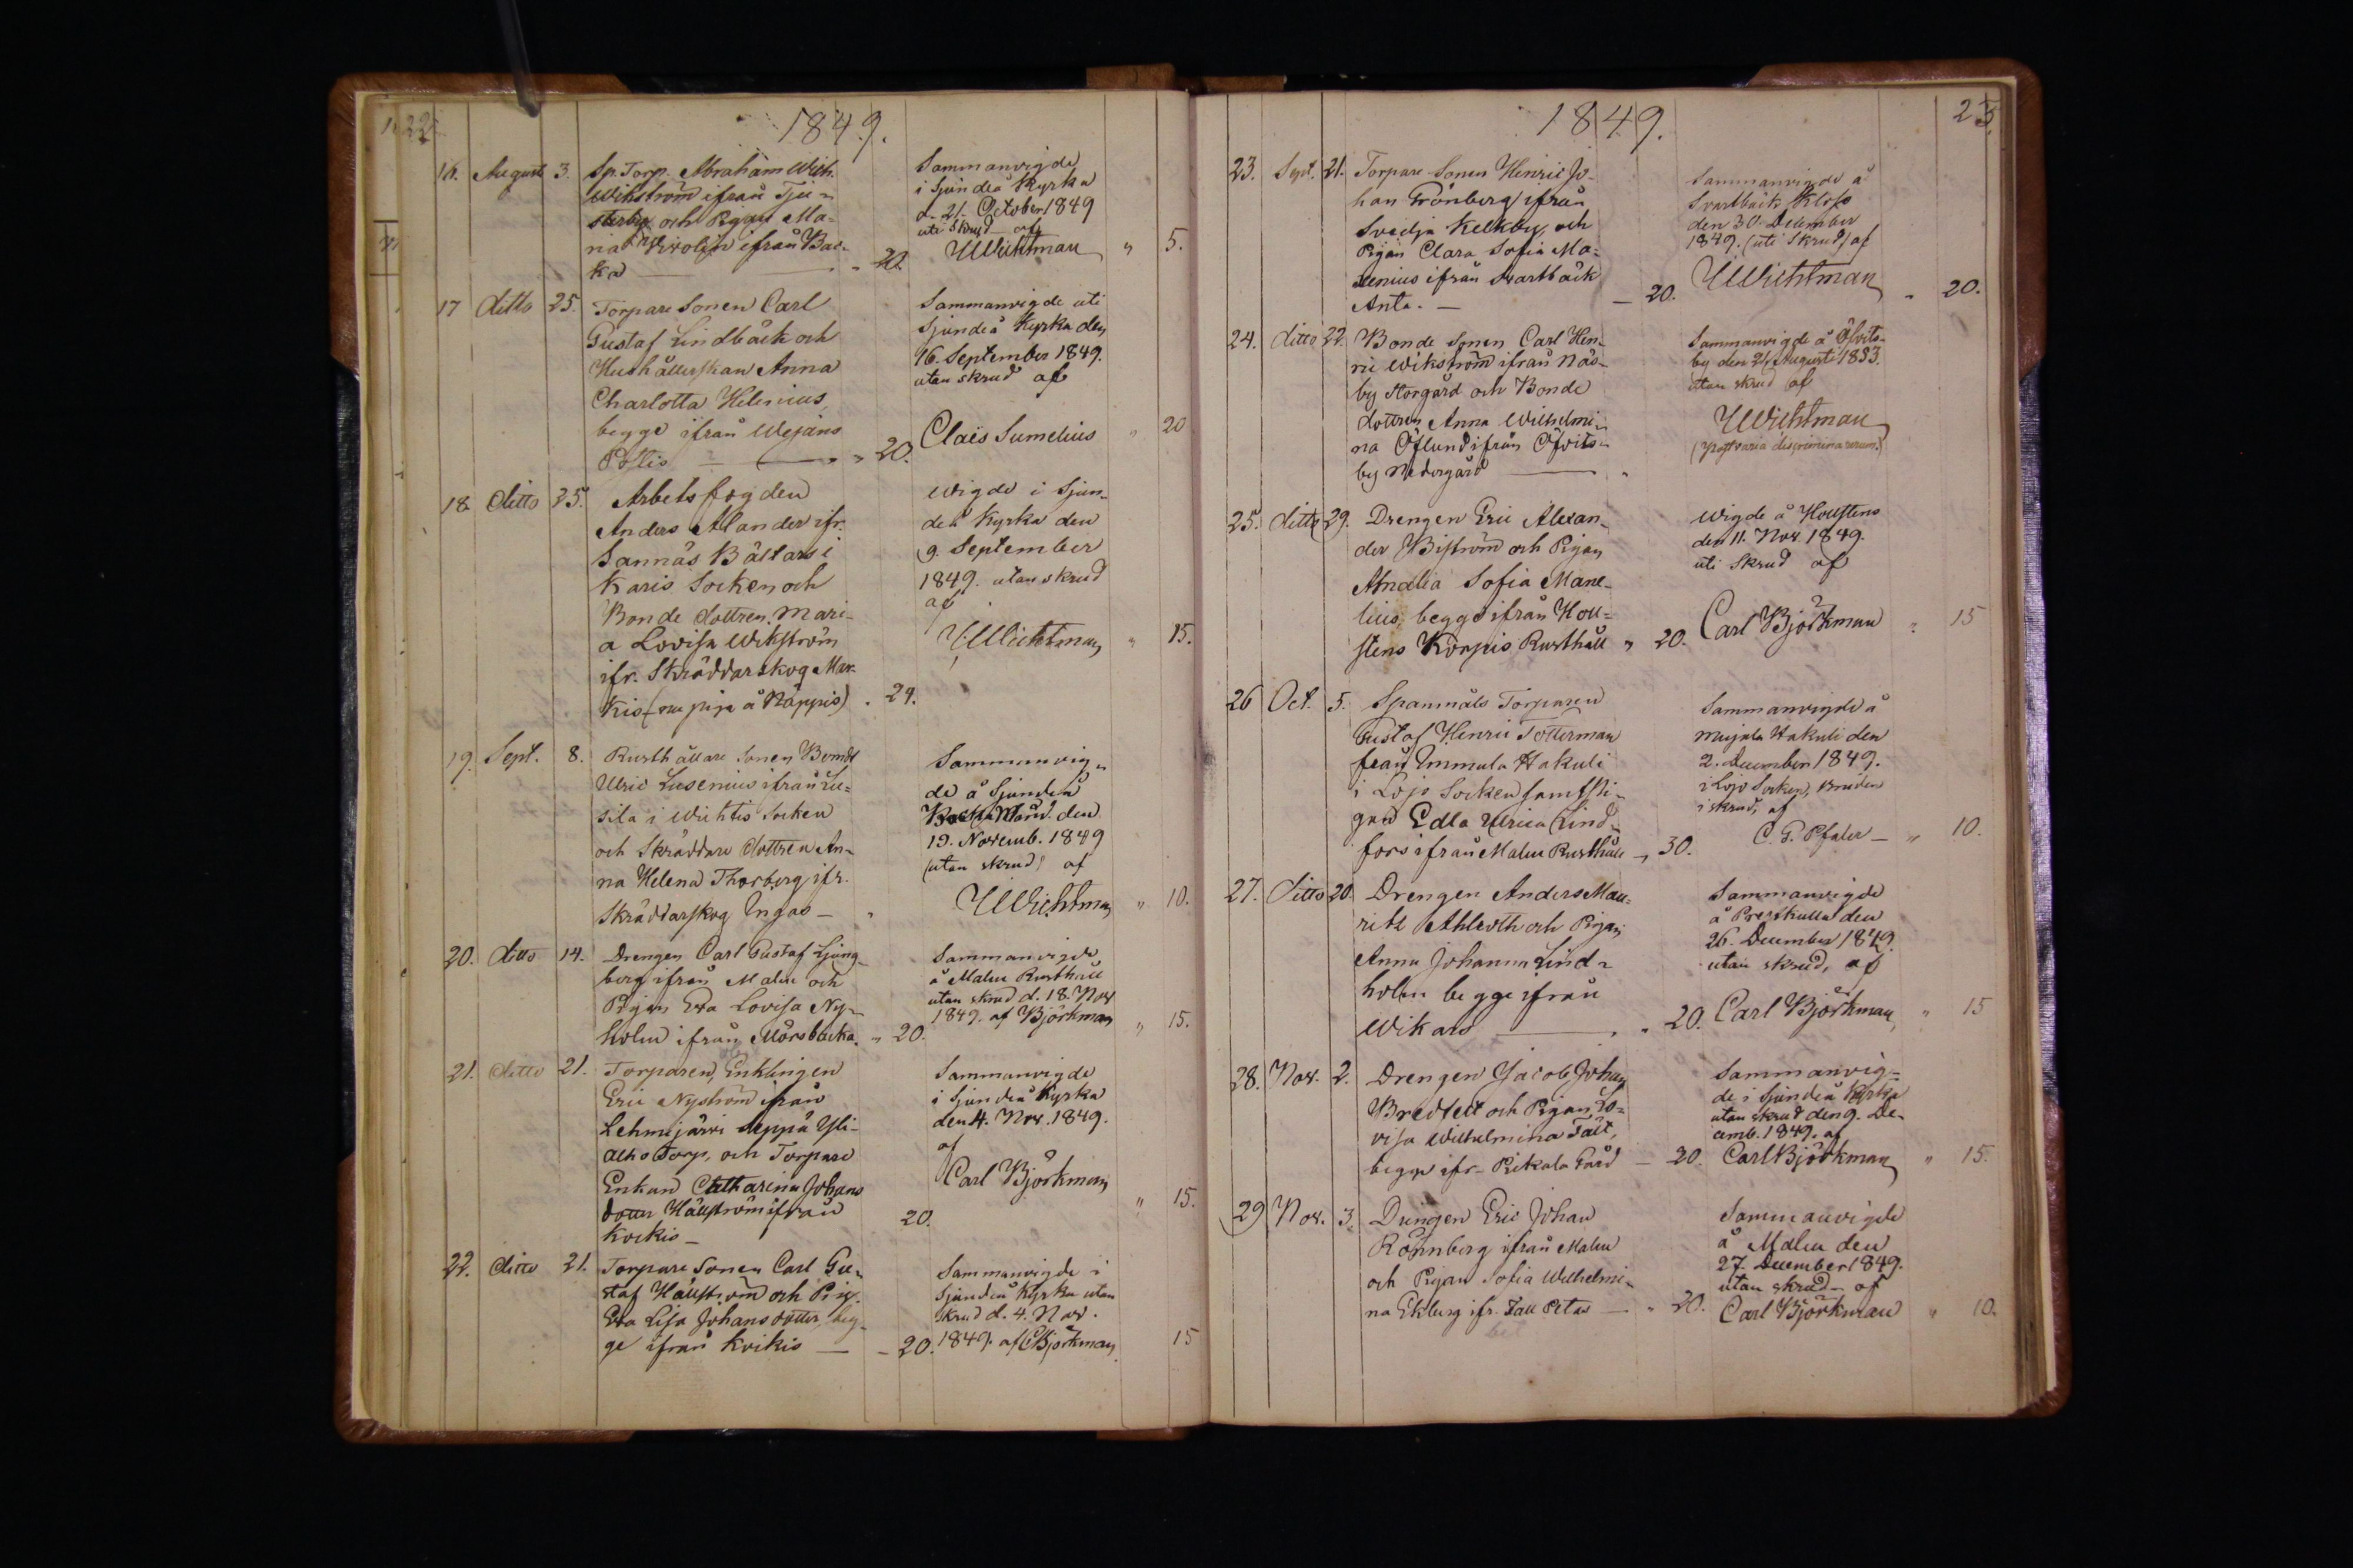 22.
1849.
16. August 3. Sp. Torp. Abraham Wilh.
Wikström ifrån Tju-
sterby och Pigan Ma-
ria ifrån Bac-
ka — " 20.
Sammanvigde
i Sjundeå Kyrka
d. 21. October 1849
uti skrud af
Wichtman " 5.
17 ditto 25. Torpare Sonen Carl
Gustaf Lindbäck och
Hushållerskan Anna
Charlotta Helenius,
begge ifrån Wejans
— " 20.
Sammanvigde uti
Sjundeå Kyrka den
16. September 1849.
utan skrud af
Claës Sumelius " 20
18 ditto 25. Arbetsfogden
Anders Alander ifr.
Sannäs Bältars i
Karis Socken och
Bonde dottren Mari-
a Lovisa Wikström
ifr. Skräddarskog Mar-
kis (nu piga å Näppis) . 24.
Wigde i Sjun-
deå Kyrka den
9. September
1849. utan skrud
af
Wichtman " 15.
19. Sept. 8. Rusthållare Sonen Berndt
Ulric Lusenius ifrån Lu-
sila i Wichtis Socken
och Skräddare dottren An-
na Helena Thorberg ifr.
Skräddarskog Ingas — "
Sammanvig-
de å Sjundeå
den
19. Novemb. 1849
(utan skrud) af
Wichtman " 10.
20. ditto 14. Drengen Carl Gustaf Ljung-
berg ifrån Malm och
Pigan Eva Lovisa Ny-
holm ifrån Mörsbacka. " 20.
Sammanvigde
å Malm Rusthåll
utan skrud d. 18. Nov
1849. af Björkman " 15.
21. ditto 21. Torparen, Enklingen
Eric Nyström ifrån
Lehmijärvi Seppä Yli-
Torp, och Torpare
Enkan Catharina Johans
dotter Hällström ifrån
Kvikis — 20.
Sammanvigde
i Sjundeå Kyrka
den 4. Nov. 1849.
af
Carl Björkman " 15.
22. ditto 21. Torpare Sonen Carl Gu-
staf Hällström och Pig.
Eva Lisa Johansdotter, beg-
ge ifrån Kvikis — - 20.
Sammanvigde i
Sjundeå Kyrka utan
skrud d. 4. Nov.
1849. af CBjörkman 15
1849.
23.
23. Sept. 21. Torpare Sonen Henric Jo-
han Grönberg ifrån
Svidja Kelkby, och
Pigan Clara Sofia Ma-
lenius ifrån Svartbäck
Anta. — — 20.
Sammanvigde å
Svartbäck Klops
den 30. December
1849. (uti Skrud) af
Wichtman " 20.
24. ditto 22. Bonde Sonen Carl Hen-
ric Wikström ifrån Näs-
by Storgård och Bonde
dottren Anna Wilhelmi-
na Öflund ifrån Öfvits-
by Nedergård — "
Sammanvigde å Öfvits-
by den 21. Augusti 1853.
utan skrud af
Wichtman
(Post varia discrimina rerum.)
25. ditto 29. Drengen Eric Alexan-
der Biström och Pigan
Amalia Sofia Mane-
lius, begge ifrån Hou-
stens Korpis Rusthåll " 20.
Wigde å Houstens
den 11. Nov. 1849.
uti Skrud af
Carl Björkman " 15
26 Oct. 5. Spannmåls Torparen
Gustaf Henric Totterman
från Immula Hakuli
i Lojo Socken samt Pi-
gan Edla Ulrica Lind-
fors ifrån Malm Rusthåll — 30.
Sammanvigde å
Hakuli den
2. December 1849.
i Lojo Socken, bruden
i skrud, af
C. G. Pfaler — " 10.
27. ditto 20. Drengen Anders Mau-
ritz Ahlroth och Pigan
Anna Johanna Lind-
holm begge ifrån
Wikars — " 20.
Sammanvigde
å Prestkulla den
26. December 1849.
utan skrud, af
Carl Björkman " 15
28. Nov. 2. Drengen Jacob Johan
Bredfelt och Pigan Lo-
visa Wilhelmina Fält,
begge ifr. Pikala Gård — 20.
Sammanvig-
de i Sjundeå Kyrka
utan skrud den 9. De-
cemb. 1849. af
Carl Björkman " 15.
29 Nov. 3. Drengen Eric Johan
Rönnberg ifrån Malm
och Pigan Sofia Wilhelmi-
na Ekberg ifr. Fall — " 20.
Sammanvigde
å Malm den
27. December 1849.
utan skrud — af
Carl Björkman " 10.